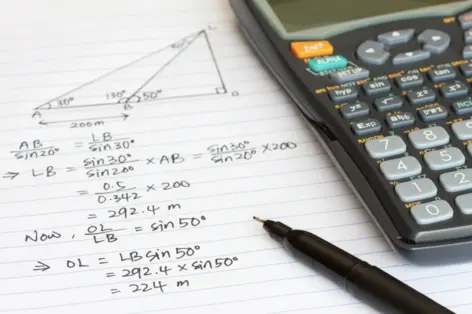 L
20°
A
30°
130°
B
50°
O
200 m
AB/sin20° = LB/sin30°
⇒ LB = sin30°/sin20° × AB = sin30°/sin20° × 200
= 0.5/0.342 × 200
= 292.4 m
Now, OL/LB = sin50°
⇒ OL = LB sin50°
= 292.4 × sin50°
= 224 m
2ndF
ALPHA
SETUP
hyp
sin
cos
tan
Exp
7
8
4
5
1
2
0